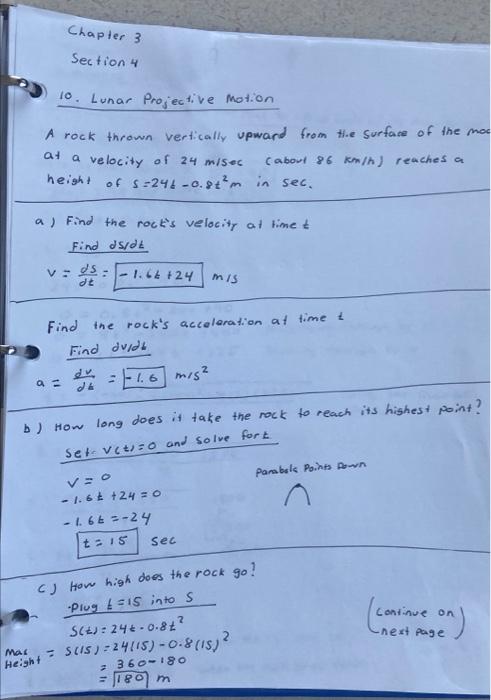 Chapter 3
Section 4
10. Lunar Projective Motion
A rock thrown vertically upward from the surface of the moo
at a velocity of 24 m/sec (about 86 km/h) reaches a
height of s=24t-0.8t²m in sec.
a) Find the rock's velocity at time t
Find ds/dt
v = ds/dt = -1.6t+24 m/s
Find the rock's acceleration at time t
Find dv/dt
a = dv/dt = -1.6 m/s²
b) How long does it take the rock to reach its highest point?
Set V(t)=0 and solve for t
v = 0
Parabola Points Down
-1.6t+24=0
-1.6t=-24
t=15 sec
c) How high does the rock go?
·Plug t=15 into S
S(t)=24t-0.8t²
Max Height = S(15)=24(15)-0.8(15)²
= 360-180
= 180 m
(Continue on next page)